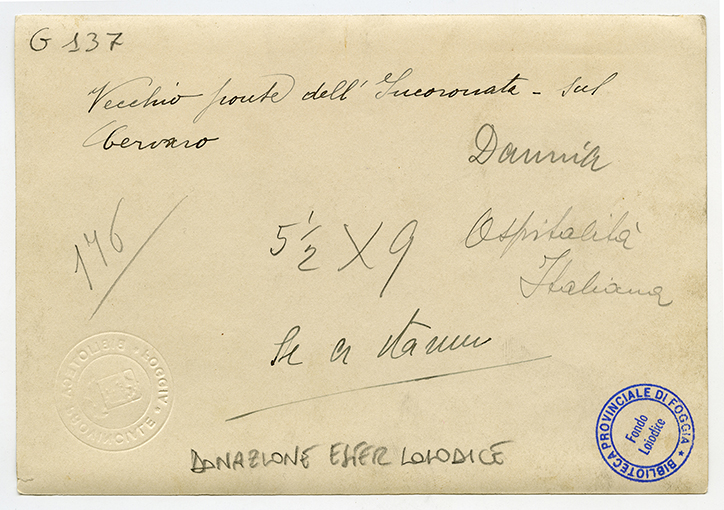 G 137
Vecchio ponte dell'Incoronata - sul
Cervaro
Daunia
176
5 1/2 X 9
Ospitalità
Italiana
Se ci stanno
BIBLIOTECA PROVINCIALE DI FOGGIA *
Fondo
Loiodice
DONAZIONE ESTER LOIODICE